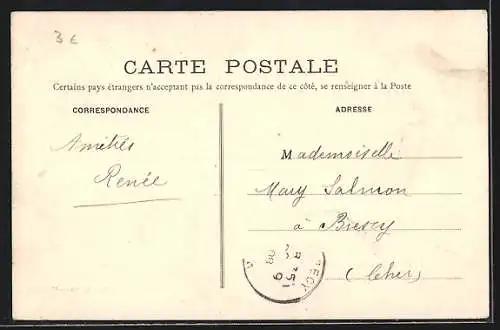 3 €
CARTE POSTALE
Certains pays étrangers n'acceptent pas la correspondance de ce côté, se renseigner à la Poste
CORRESPONDANCE
ADRESSE
Amitiés
Renée
Mademoiselle
Mary Salmon
à
(Cher)